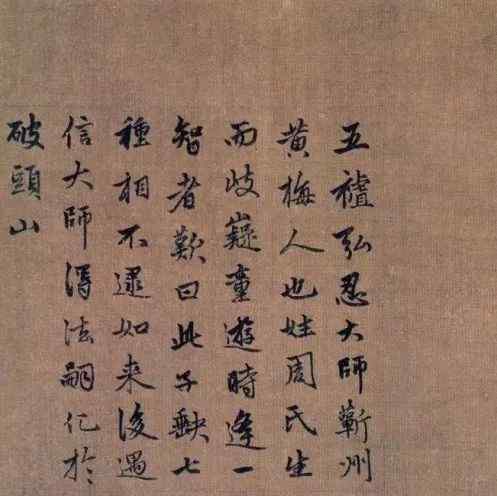 五襠弘忍大師蘄州
黄梅人也姓周氏生
而歧嶷童遊時逢一
智者歎曰此子缺七
種相不逮如来後遇
信大師得法嗣化於
破頭山